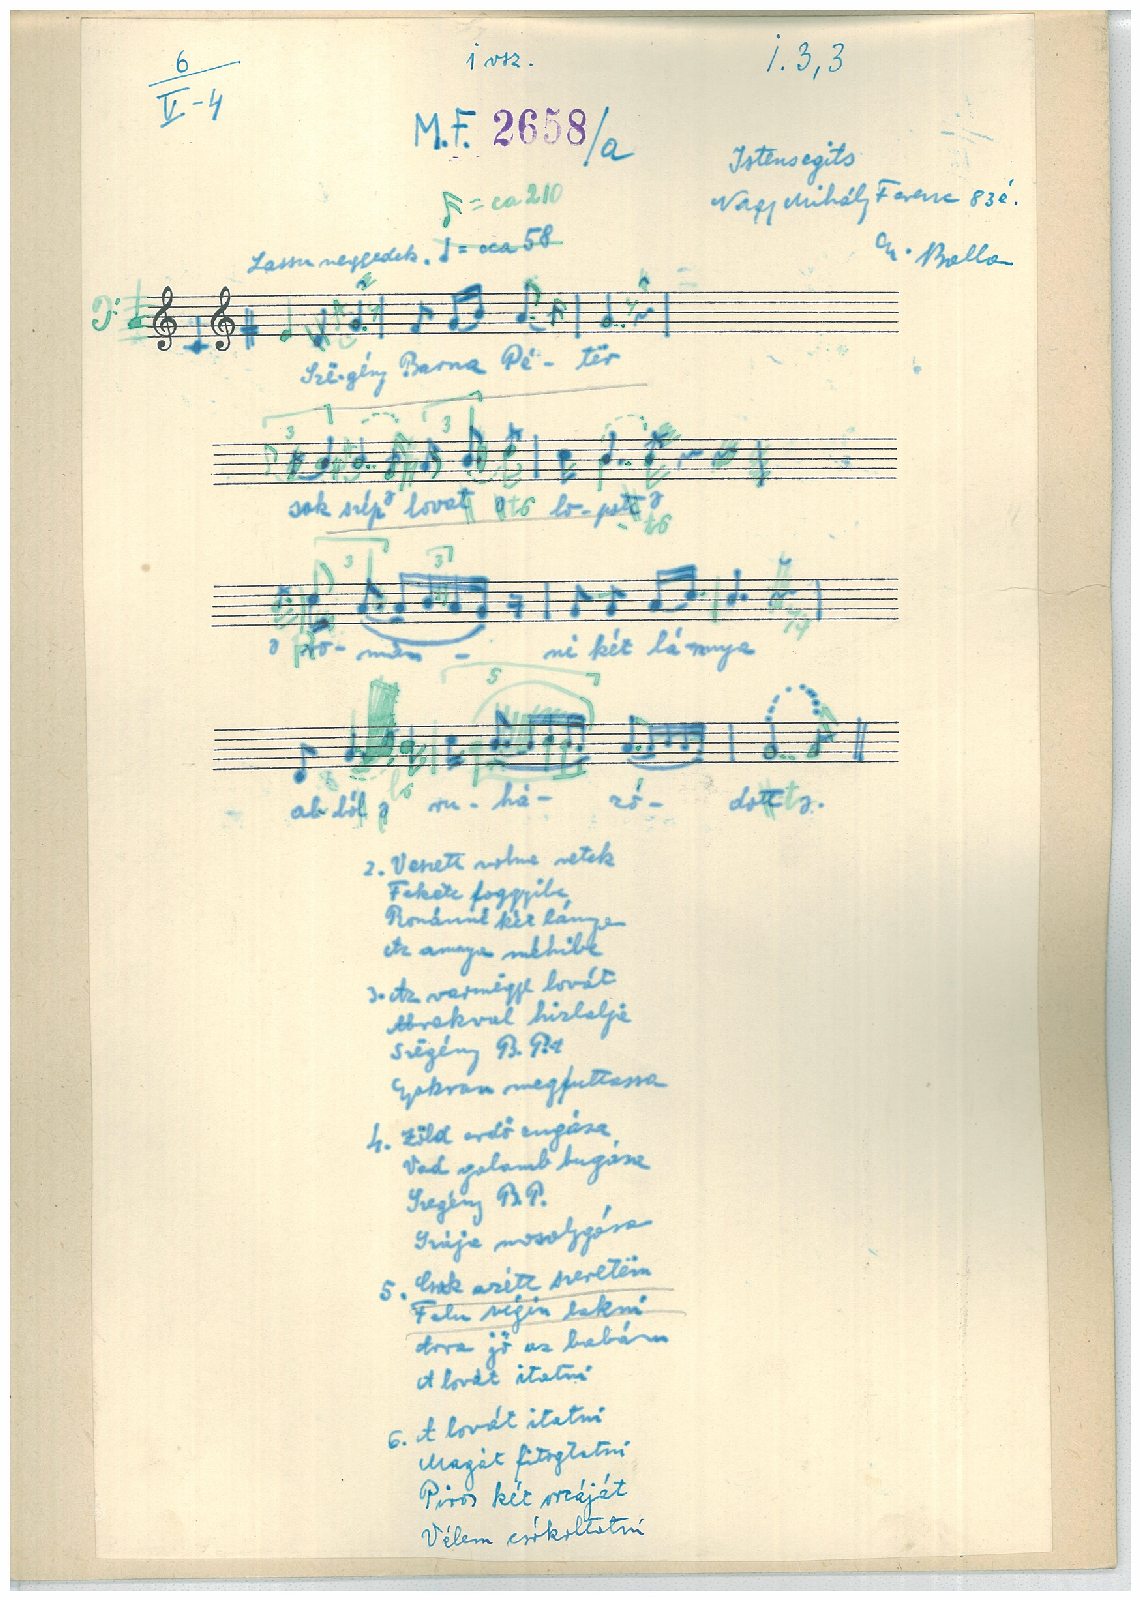 6
V-4
i vsz.
i. 3,3
M.F. 2658/a
Istensegits
Nagy Mihály Ferenc 83é.
Balla
= ca 210
Lassu negyedek. = cca 58
Szë-gény Barna Pé- tër
3 3
sak szép lovat lo-pott
3 3
mán - ni két lá-nnya
5
ab ból ru - há- zó- dott
2. Veszett volna retek
Fekete
két lánya
Az annya méhibe
3. Az varmëgye lovát
Abrakval hizlalja
Szëgény B. P.
Gyakran megfuttassa
4. Zöld erdő zugása
Vad galamb bugása
Szegény B.P.
Szája mosolygása
5. Csak azétt szeretëm
Falu végin lakni
Arra jő az babám
A lovát itatni
6. A lovát itatni
Magát
Piros két orcáját
Vélem csókoltatni